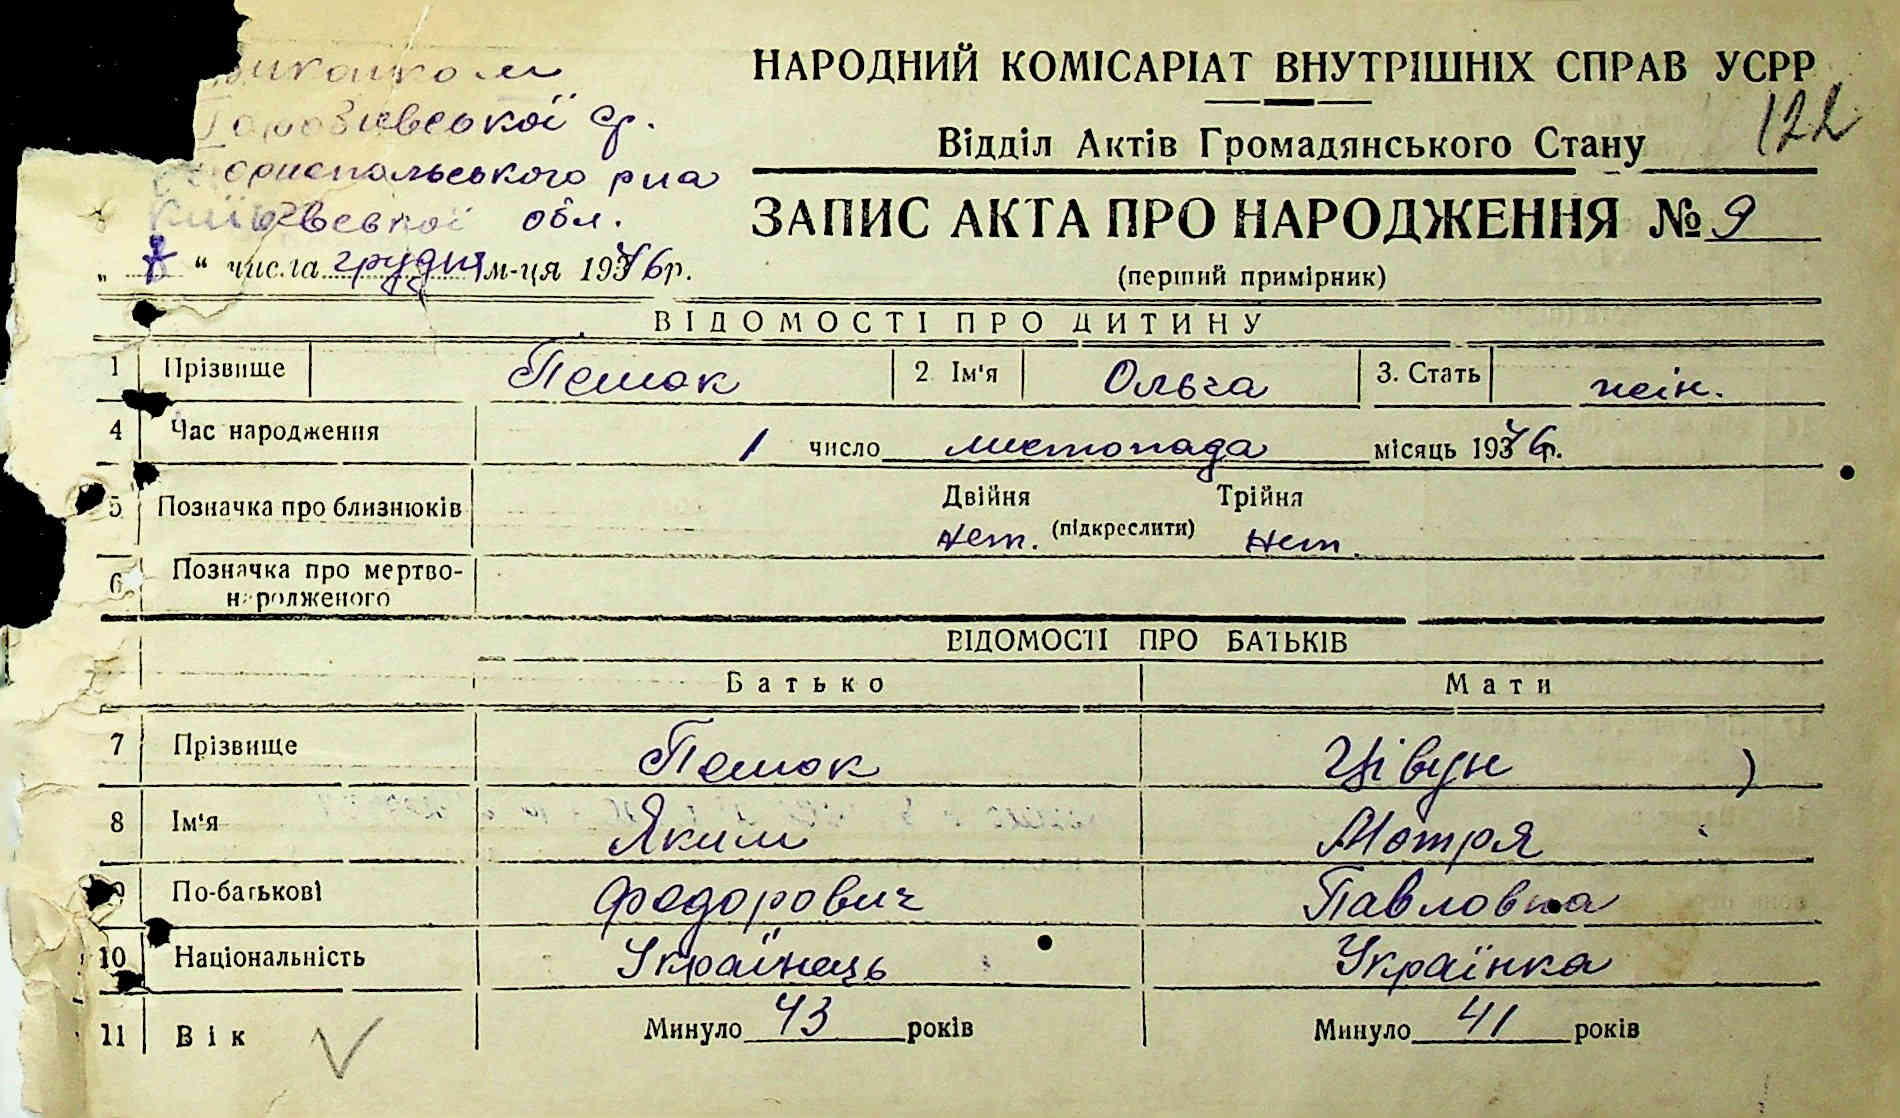 виконком
Горобіївської с/р.
Бориспольського р-на
Київської обл.
„ 7 “ числа грудня м-ця 1946 р.
НАРОДНИЙ КОМІСАРІАТ ВНУТРІШНІХ СПРАВ УСРР
122
Відділ Актів Громадянського Стану
ЗАПИС АКТА ПРО НАРОДЖЕННЯ № 9
(перший примірник)
ВІДОМОСТІ ПРО ДИТИНУ
1 Прізвище Пешок 2. Ім'я Ольга 3. Стать жін.
4 Час народження 1 число листопада місяць 1946 р.
5 Позначка про близнюків Двійня Трійня
нет. (підкреслити) нет.
6 Позначка про мертво-
народженого
ВІДОМОСТІ ПРО БАТЬКІВ
Батько Мати
7 Прізвище Пешок Цівун
8 Ім'я Яким Мотря
9 По-батькові Федорович Павловна
10 Національність Українець Українка
11 Вік Минуло 43 років Минуло 41 років